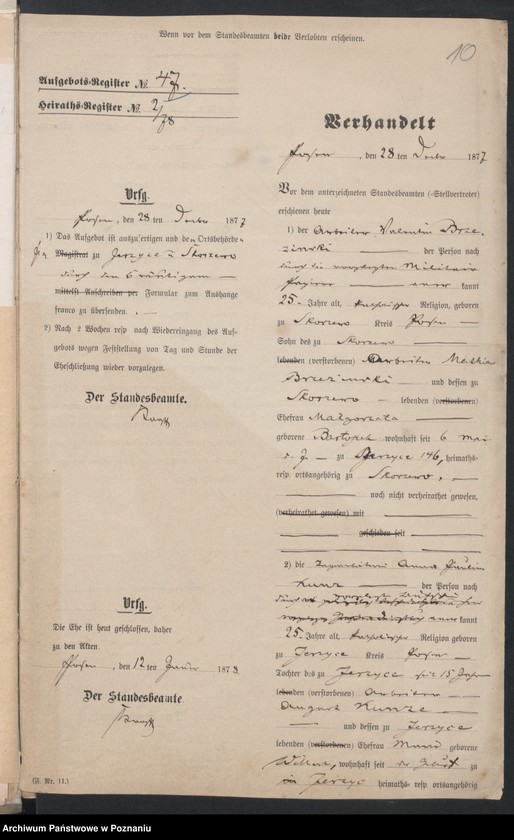 Wenn vor dem Standesbeamten beide Verlobten erscheinen.
10
Aufgebots-Register № 47.
Heiraths-Register № 2/78
Verhandelt
Posen, den 28 ten Decbr 1877
Vor dem unterzeichneten Standesbeamten (=Stellvertreter)
erschienen heute
1) der Arbeiter Valentin Brze-
zinski — der Person nach
durch die vorgelegten Militair
Papiere — kannt
25. Jahre alt, katholischer Religion, geboren
zu Skorzewo Kreis Posen —
Sohn des zu Skorzewo —
lebenden (verstorbenen) Arbeiter
Brzezinski — und dessen zu
Skorzewo — lebenden (verstorbenen)
Ehefrau Malgorzata —
geborene wohnhaft seit 6 Mai
zu Jerzyce 146, heimaths-
resp. ortsangehörig zu Skorzewo, —
— noch nicht verheirathet gewesen,
(verheirathet gewesen) mit —
— geschieden seit —
2) die Anna Paulin
Kunz — der Person nach
kannt
25. Jahre alt, katholischer Religion geboren
zu Jerzyce Kreis Posen —
Tochter des zu Jerzyce seit 15 Jahren
lebenden (verstorbenen) Arbeiters —
August Kunze —
— und dessen zu Jerzyce
lebenden (verstorbenen) Ehefrau geborene
wohnhaft seit der Geburt zu
in Jerzyce heimaths- resp. ortsangehörig
Vrfg.
Posen, den 28 ten Decbr 1877
1) Das Aufgebot ist auszufertigen und den Ortsbehörden
Magistrat zu Jerzyce u Skorzewo
durch den —
mittelst Anschreiben per Formular zum Aushange
franco zu übersenden. —
2) Nach 2 Wochen resp nach Wiedereingang des Auf-
gebots wegen Feststellung von Tag und Stunde der
Eheschließung wieder vorzulegen.
Der Standesbeamte.
Vrfg.
Die Ehe ist heut geschlossen, daher
zu den Akten.
Posen, den 12 ten Januar 1878.
Der Standesbeamte
(F. Nr. 11.)
Archiwum Państwowe w Poznaniu